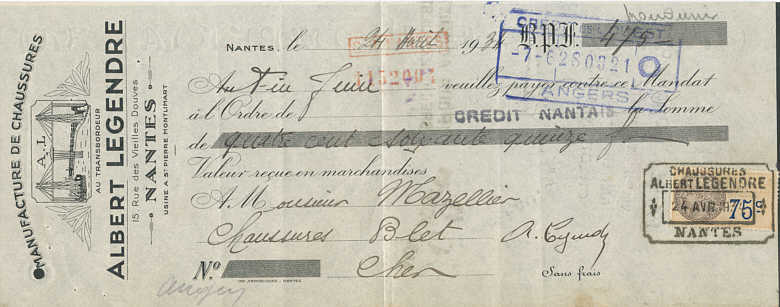 MANUFACTURE DE CHAUSSURES
A.L
AU TRANSBORDEUR
ALBERT LEGENDRE
15 Rue des Vieilles Douves
NANTES
USINE A ST PIERRE MONTLIMART
NANTES, le 24 Avril 19 B.P.F. 475
ANGERS
Au fin Juin veuillez payer contre ce Mandat
à l'Ordre de CREDIT NANTAIS la somme
de quatre cent soixante quinze
Valeur reçue en marchandises
A Monsieur Mazellier
Chaussures Blet A. Legendre
Cher
No
Sans frais
CHAUSSURES
ALBERT LEGENDRE
24 AVR 75c
NANTES